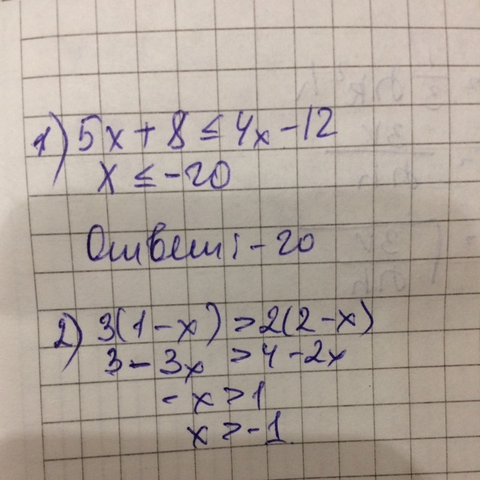 1) 5x + 8 ≤ 4x - 12
x ≤ -20
Ответ: -20
2) 3(1 - x) > 2(2 - x)
3 - 3x > 4 - 2x
- x > 1
x > -1